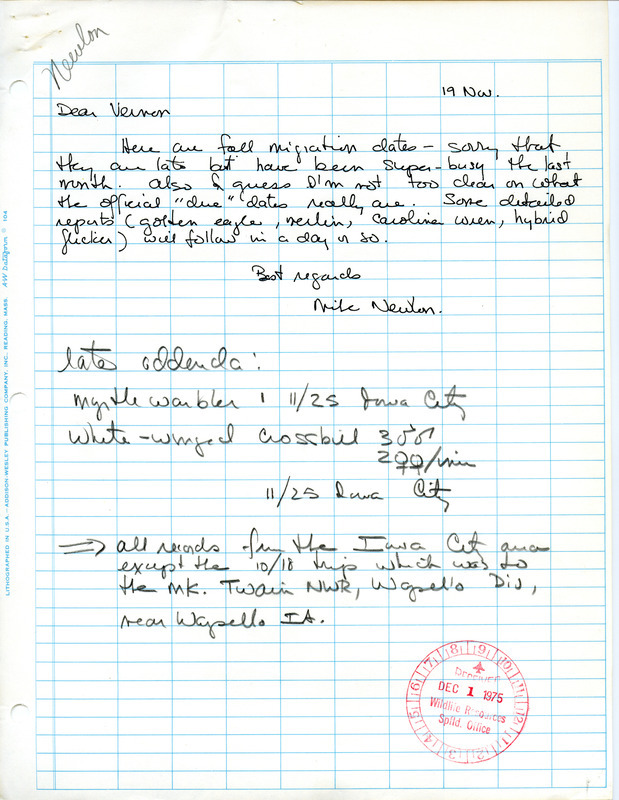 Newton
19 Nov.
Dear Vernon
Here are fall migration dates – sorry that
they are late but have been super-busy the last
month. Also I guess I'm not too clear on what
the official "due" dates really are. Some detailed
reports (golden eagle, merlin, Carolina wren, hybrid
flicker) will follow in a day or so.
Best regards
Mike Newton.
late addenda:
Myrtle warbler 1 11/25 Iowa City
White-winged Crossbill 3♂♂
2♀♀/imm
11/25 Iowa City
⇒ all records from the Iowa City area
except the 10/18 trip which was to
the Mk. Twain NWR, Wapello Div,
near Wapello IA.
RECEIVED
DEC 1 1975
Wildlife Resources
Spfld. Office
1 2 3 4 5 6 7 8 9 10 11 12
LITHOGRAPHED IN U.S.A. - ADDISON-WESLEY PUBLISHING COMPANY, INC. READING, MASS. AW Dataforms ® 104